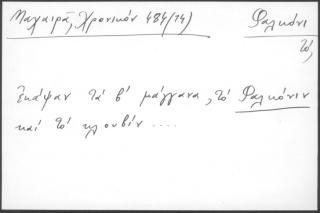 Μαχαιρᾶ, Χρονικόν 484/14) Φαλκόνι
τό,
Ἐκάψαν τά β' μάγγανα, τό Φαλκόνιν
καί τό κλουβίν ....